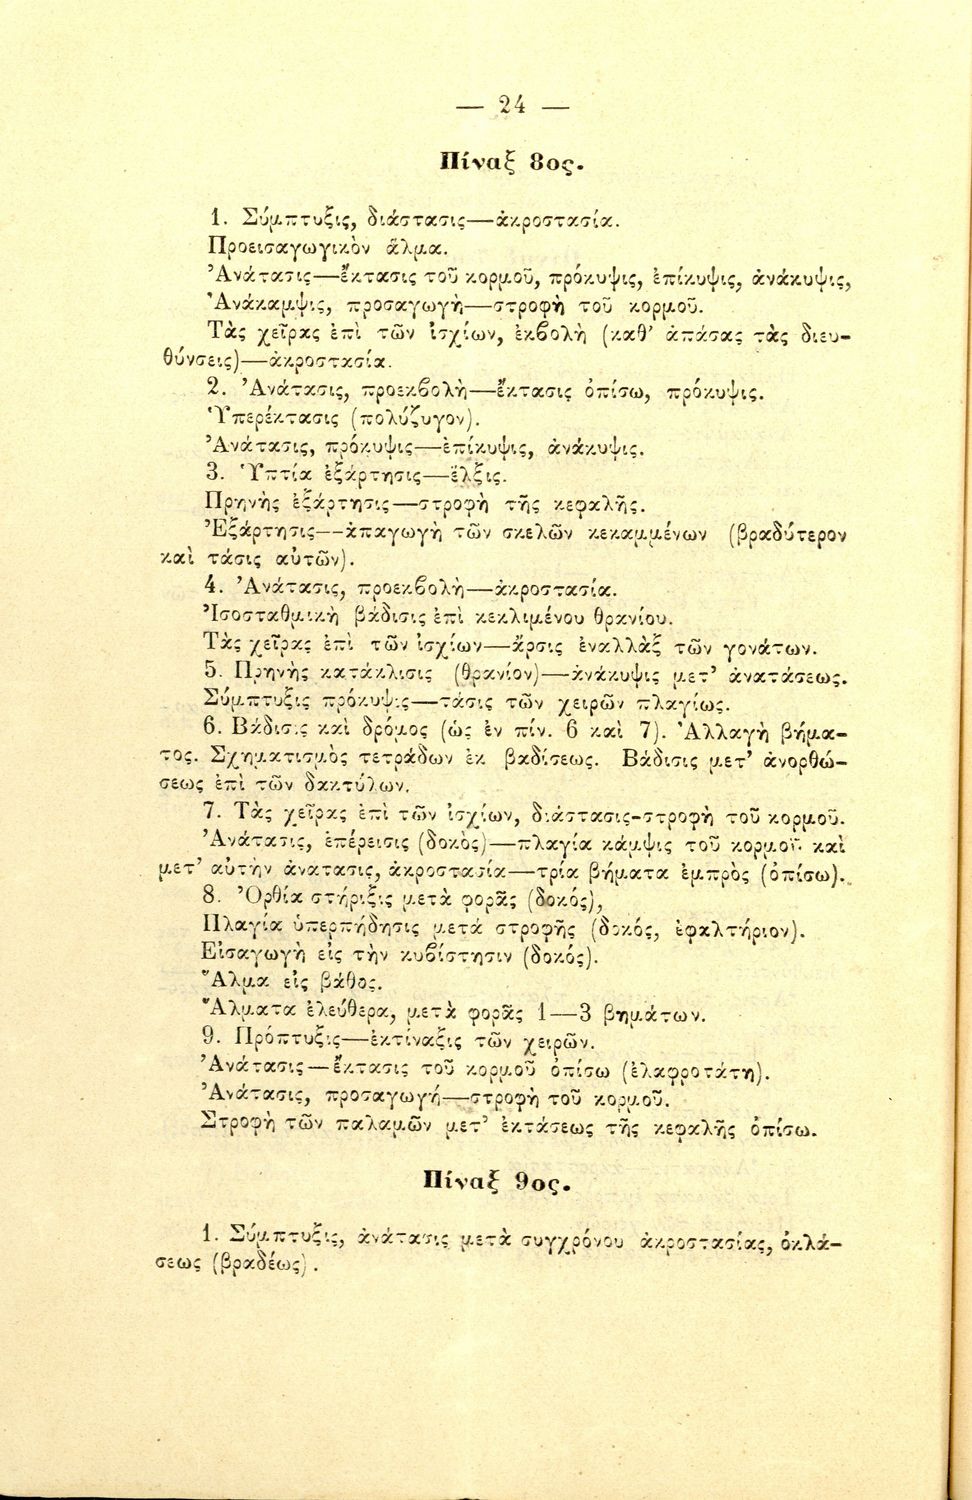 — 24 —
Πίναξ 8ος.
1. Σύμπτυξις, διάστασις—ἀκροστασία.
Προεισαγωγικὸν ἅλμα.
Ἀνάτασις—ἔκτασις τοῦ κορμοῦ, πρόκυψις, ἐπίκυψις, ἀνάκυψις,
Ἀνάκαμψις, προσαγωγὴ—στροφὴ τοῦ κορμοῦ.
Τὰς χεῖρας ἐπὶ τῶν ἰσχίων, ἐκβολὴ (καθ’ ἁπάσας τὰς διευ-
θύνσεις)—ἀκροστασία.
2. Ἀνάτασις, προεκβολὴ—ἔκτασις ὀπίσω, πρόκυψις.
Ὑπερέκτασις (πολύζυγον).
Ἀνάτασις, πρόκυψις—ἐπίκυψις, ἀνάκυψις.
3. Ὑπτία ἐξάρτησις—ἕλξις.
Πρηνὴς ἐξάρτησις—στροφὴ τῆς κεφαλῆς.
Ἐξάρτησις—ἀπαγωγὴ τῶν σκελῶν κεκαμμένων (βραδύτερον
καὶ τάσις αὐτῶν).
4. Ἀνάτασις, προεκβολὴ—ἀκροστασία.
Ἰσοσταθμικὴ βάδισις ἐπὶ κεκλιμένου θρανίου.
Τὰς χεῖρας ἐπὶ τῶν ἰσχίων—ἄρσις ἐναλλὰξ τῶν γονάτων.
5. Πρηνὴς κατάκλισις (θρανίον)—ἀνάκυψις μετ’ ἀνατάσεως.
Σύμπτυξις πρόκυψις—τάσις τῶν χειρῶν πλαγίως.
6. Βάδισις καὶ δρόμος (ὡς ἐν πίν. 6 καὶ 7). Ἀλλαγὴ βήμα-
τος. Σχηματισμὸς τετράδων ἐκ βαδίσεως. Βάδισις μετ’ ἀνορθώ-
σεως ἐπὶ τῶν δακτύλων.
7. Τὰς χεῖρας ἐπὶ τῶν ἰσχίων, διάστασις-στροφὴ τοῦ κορμοῦ.
Ἀνάτασις, ἐπέρεισις (δοκὸς)—πλαγία κάμψις τοῦ κορμοῦ καὶ
μετ’ αὐτὴν ἀνάτασις, ἀκροστασία—τρία βήματα ἐμπρὸς (ὀπίσω).
8. Ὀρθία στήριξις μετὰ φορᾶς (δοκός),
Πλαγία ὑπερπήδησις μετὰ στροφῆς (δοκός, ἐφαλτήριον).
Εἰσαγωγὴ εἰς τὴν κυβίστησιν (δοκός).
Ἅλμα εἰς βάθος.
Ἅλματα ἐλεύθερα, μετὰ φορᾶς 1—3 βημάτων.
9. Πρόπτυξις—ἐκτίναξις τῶν χειρῶν.
Ἀνάτασις—ἔκτασις τοῦ κορμοῦ ὀπίσω (ἐλαφροτάτη).
Ἀνάτασις, προσαγωγή—στροφὴ τοῦ κορμοῦ.
Στροφὴ τῶν παλαμῶν μετ’ ἐκτάσεως τῆς κεφαλῆς ὀπίσω.
Πίναξ 9ος.
1. Σύμπτυξις, ἀνάτασις μετὰ συγχρόνου ἀκροστασίας, ὀκλά-
σεως (βραδέως).